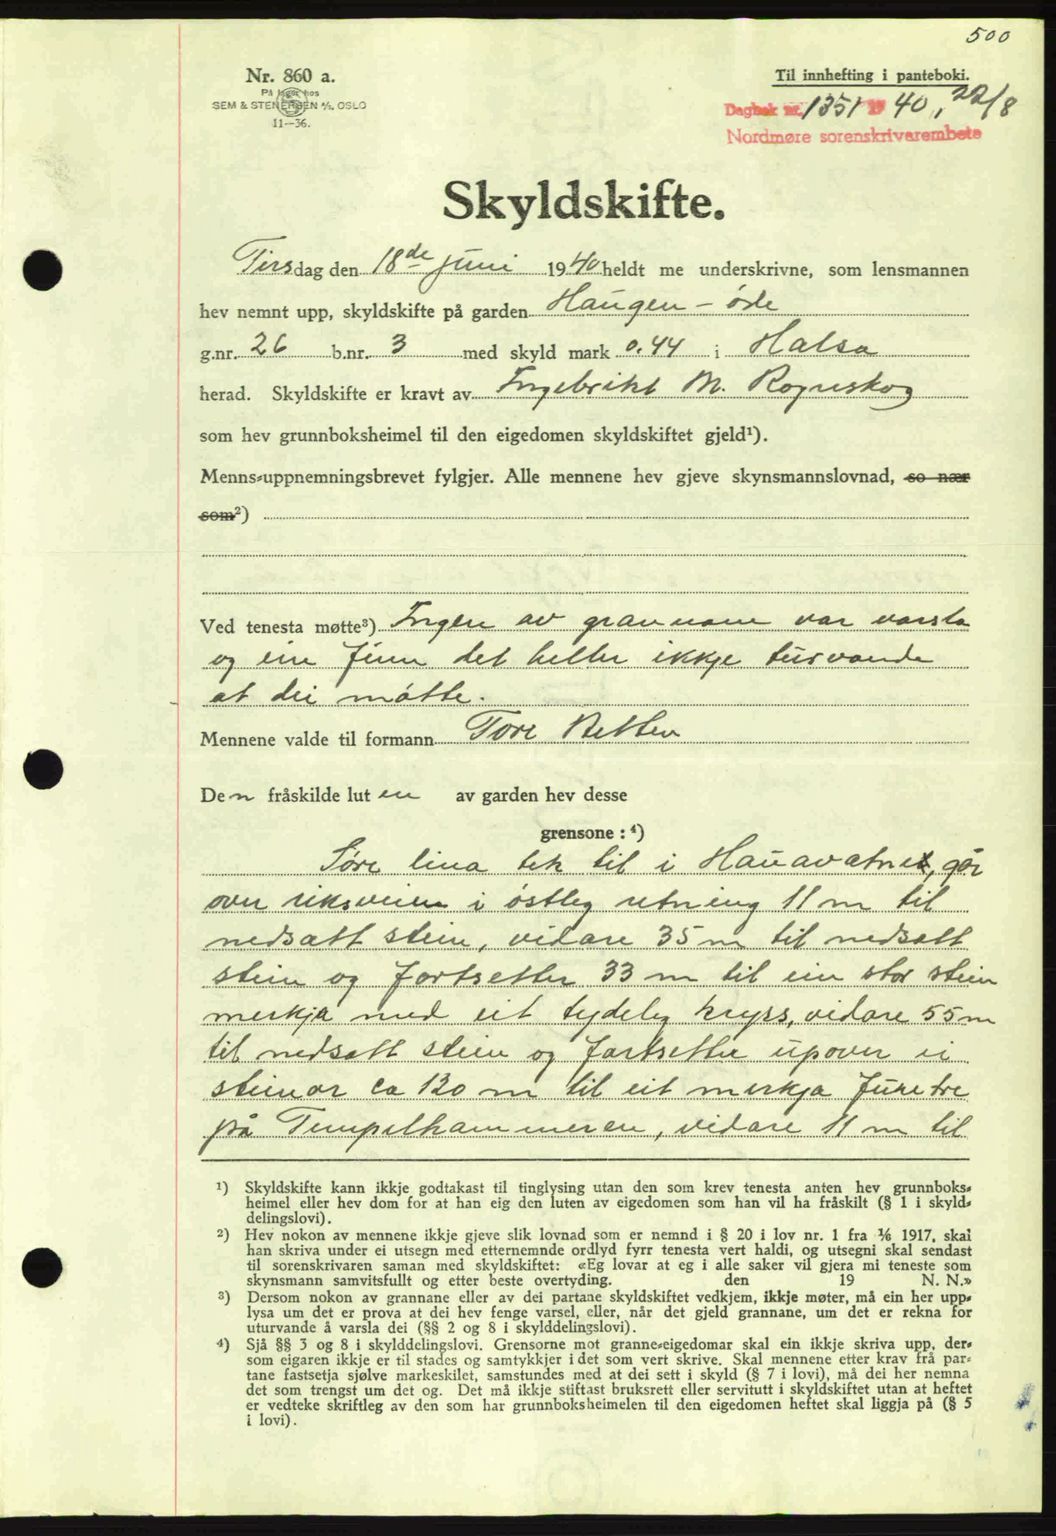 500
Nr. 860 a.
På lager hos
SEM & STENERSEN A/S, OSLO
11—36.
Til innhefting i panteboki.
Dagbok nr. 1351 19 40, 22/8
Nordmøre sorenskrivarembete
Skyldskifte.
Tirsdag den 18de juni 1940 heldt me underskrivne, som lensmannen
hev nemnt upp, skyldskifte på garden Haugen - øde
g.nr. 26 b.nr. 3 med skyld mark 0.44 i Halsa
herad. Skyldskifte er kravt av Ingebrikt M. Rognskog
som hev grunnboksheimel til den eigedomen skyldskiftet gjeld¹).
Menns-uppnemningsbrevet fylgjer. Alle mennene hev gjeve skynsmannslovnad, so nær
som²)
Ved tenesta møtte³) Ingen av grannane var varsla
og ein finn det heller ikkje turvande
at dei møtte.
Mennene valde til formann Tore Betten
Den fråskilde luten av garden hev desse
grensone: ⁴)
Søre lina tek til i Hauavatnet, går
over riksveien i østleg retning 11 m til
nedsatt stein, vidare 35 m til nedsatt
stein og fortsetter 33 m til ein stor stein
merkja med eit tydeleg kryss, vidare 55 m
til nedsatt stein og fortsetter upover ei
steinor ca 130 m til eit merkja furetre
på Tempelhammeren, vidare 11 m til
¹) Skyldskifte kann ikkje godtakast til tinglysing utan den som krev tenesta anten hev grunnboks-
heimel eller hev dom for at han eig den luten av eigedomen som han vil ha fråskilt (§ 1 i skyld-
delingslovi).
²) Hev nokon av mennene ikkje gjeve slik lovnad som er nemnd i § 20 i lov nr. 1 fra 1/6 1917, skal
han skriva under ei utsegn med etternemnde ordlyd fyrr tenesta vert haldi, og utsegni skal sendast
til sorenskrivaren saman med skyldskiftet: «Eg lovar at eg i alle saker vil gjera mi teneste som
skynsmann samvitsfullt og etter beste overtyding. den 19 N. N.»
³) Dersom nokon av grannane eller av dei partane skyldskiftet vedkjem, ikkje møter, må ein her upp-
lysa um det er prova at dei hev fenge varsel, eller, når det gjeld grannane, um det er rekna for
uturvande å varsla dei (§§ 2 og 8 i skylddelingslovi).
⁴) Sjå §§ 3 og 8 i skylddelingslovi. Grensorne mot granne-eigedomar skal ein ikkje skriva upp, der-
som eigaren ikkje er til stades og samtykkjer i det som vert skrive. Skal mennene etter krav frå par-
tane fastsetja sjølve markeskilet, samstundes med at dei sett i skyld (§ 7 i lovi), må dei her nemna
det som trengst um det og. Det må ikkje stiftast bruksrett eller servitutt i skyldskiftet utan at heftet
er vedteke skriftleg av den som har grunnboksheimelen til den eigedomen heftet skal liggja på (§ 5
i lovi).